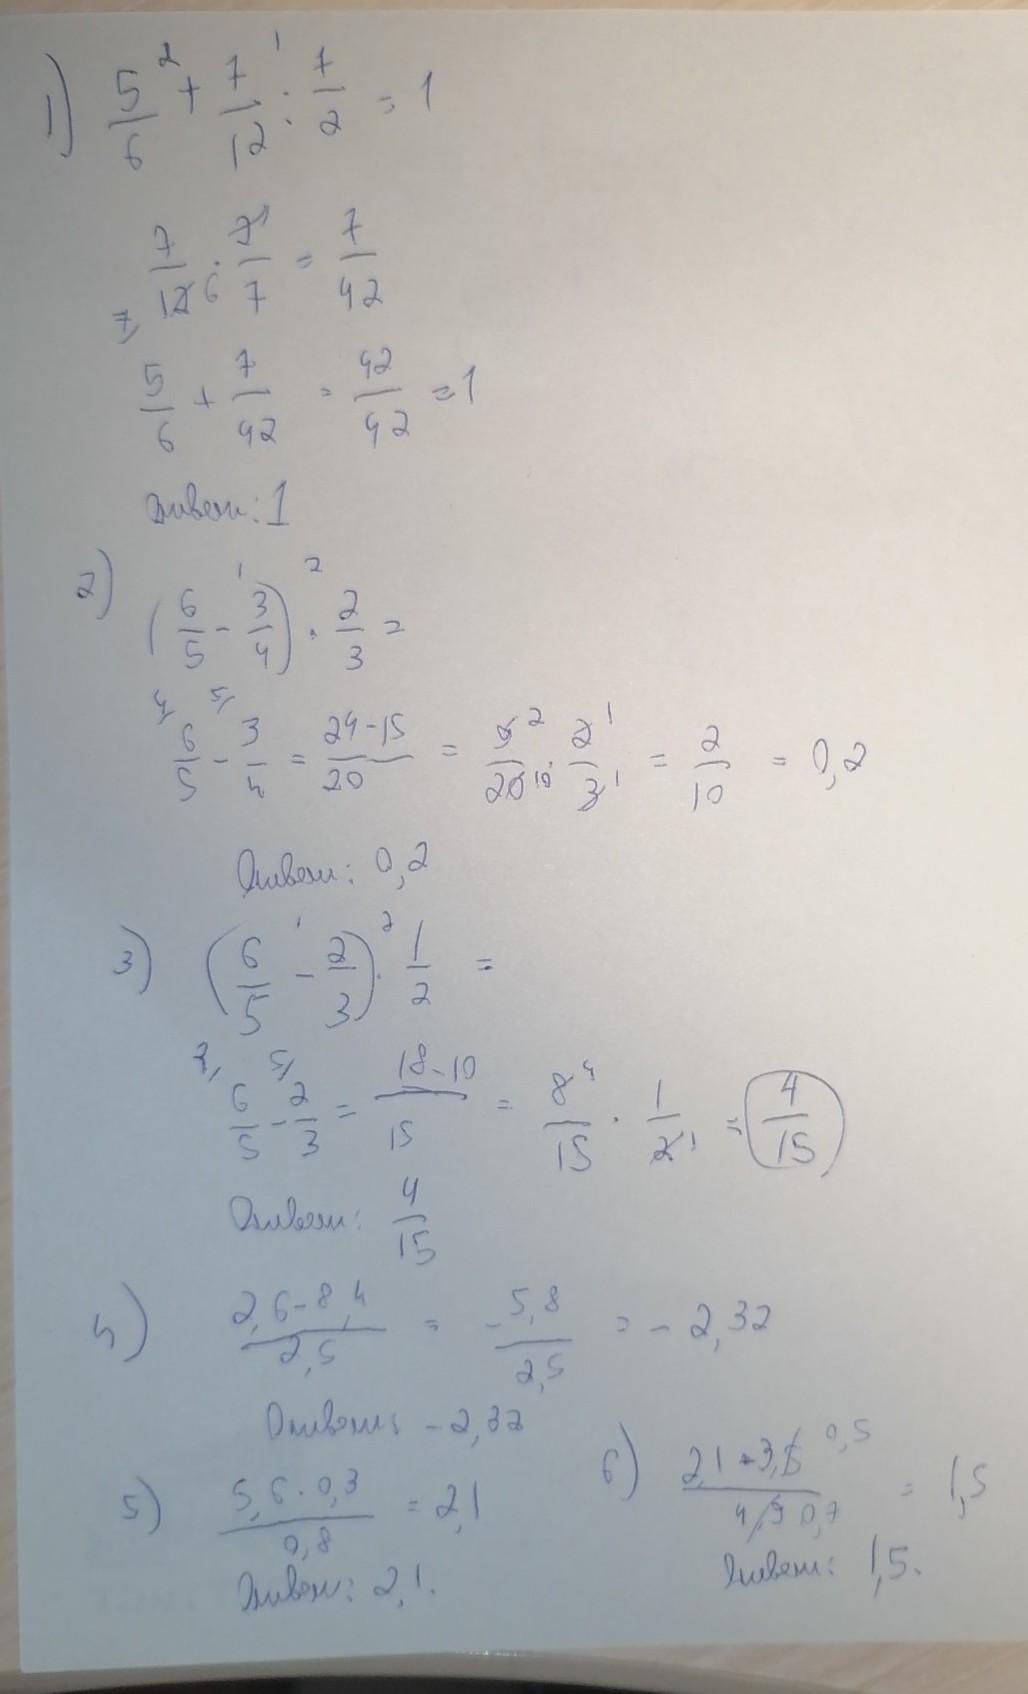 1) 5/6 + 7/12 : 7/2 = 1
7/12 · 2/7 = 7/42
5/6 + 7/42 = 42/42 = 1
Ответ: 1
2) (6/5 - 3/4) · 2/3 =
6/5 - 3/4 = 24-15/20 = 9/20 · 2/3 = 2/10 = 0,2
Ответ: 0,2
3) (6/5 - 2/3) · 1/2 =
6/5 - 2/3 = 18-10/15 = 8/15 · 1/2 = 4/15
Ответ: 4/15
4) 2,6-8,4/2,5 = -5,8/2,5 = -2,32
Ответ: -2,32
5) 5,6 · 0,3/0,8 = 2,1
Ответ: 2,1.
6) 2,1 · 3,5/4,9 = 1,5
Ответ: 1,5.